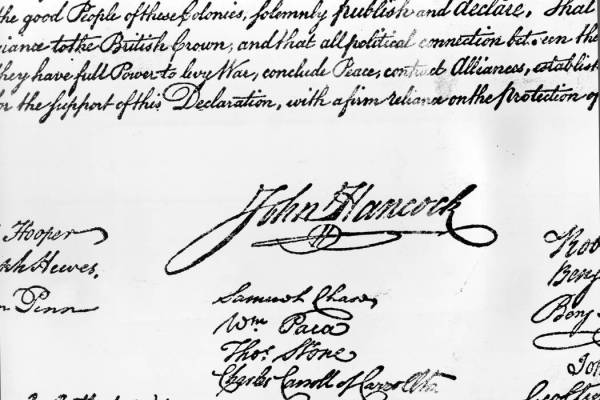 the good People of these Colonies, solemnly publish and declare, That
iance to the British Crown, and that all political connection between the
they have full Power to levy War, conclude Peace, contract Alliances, establish
or the support of this Declaration, with a firm reliance on the Protection of
John Hancock
Hooper
Hewes,
Penn
Samuel Chase
Wm Paca
Thos Stone
Charles Carroll of Carrollton
Rob
Benj
Benj